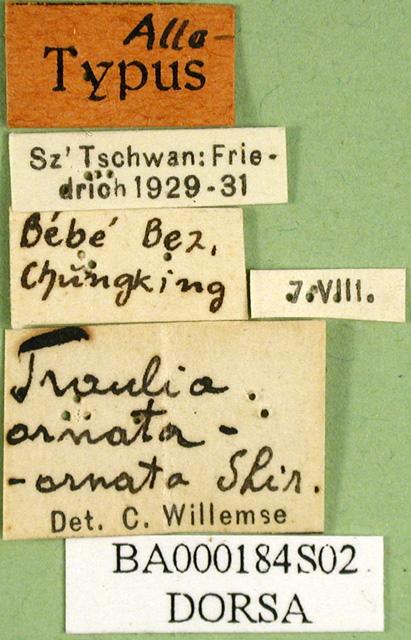 Allo-
Typus
Sz' Tschwan: Frie-
drich 1929-31
Bébé Bez,
Chungking
7.VIII.
Traulia
ornata -
- ornata Shir.
Det. C. Willemse
BA000184S02
DORSA